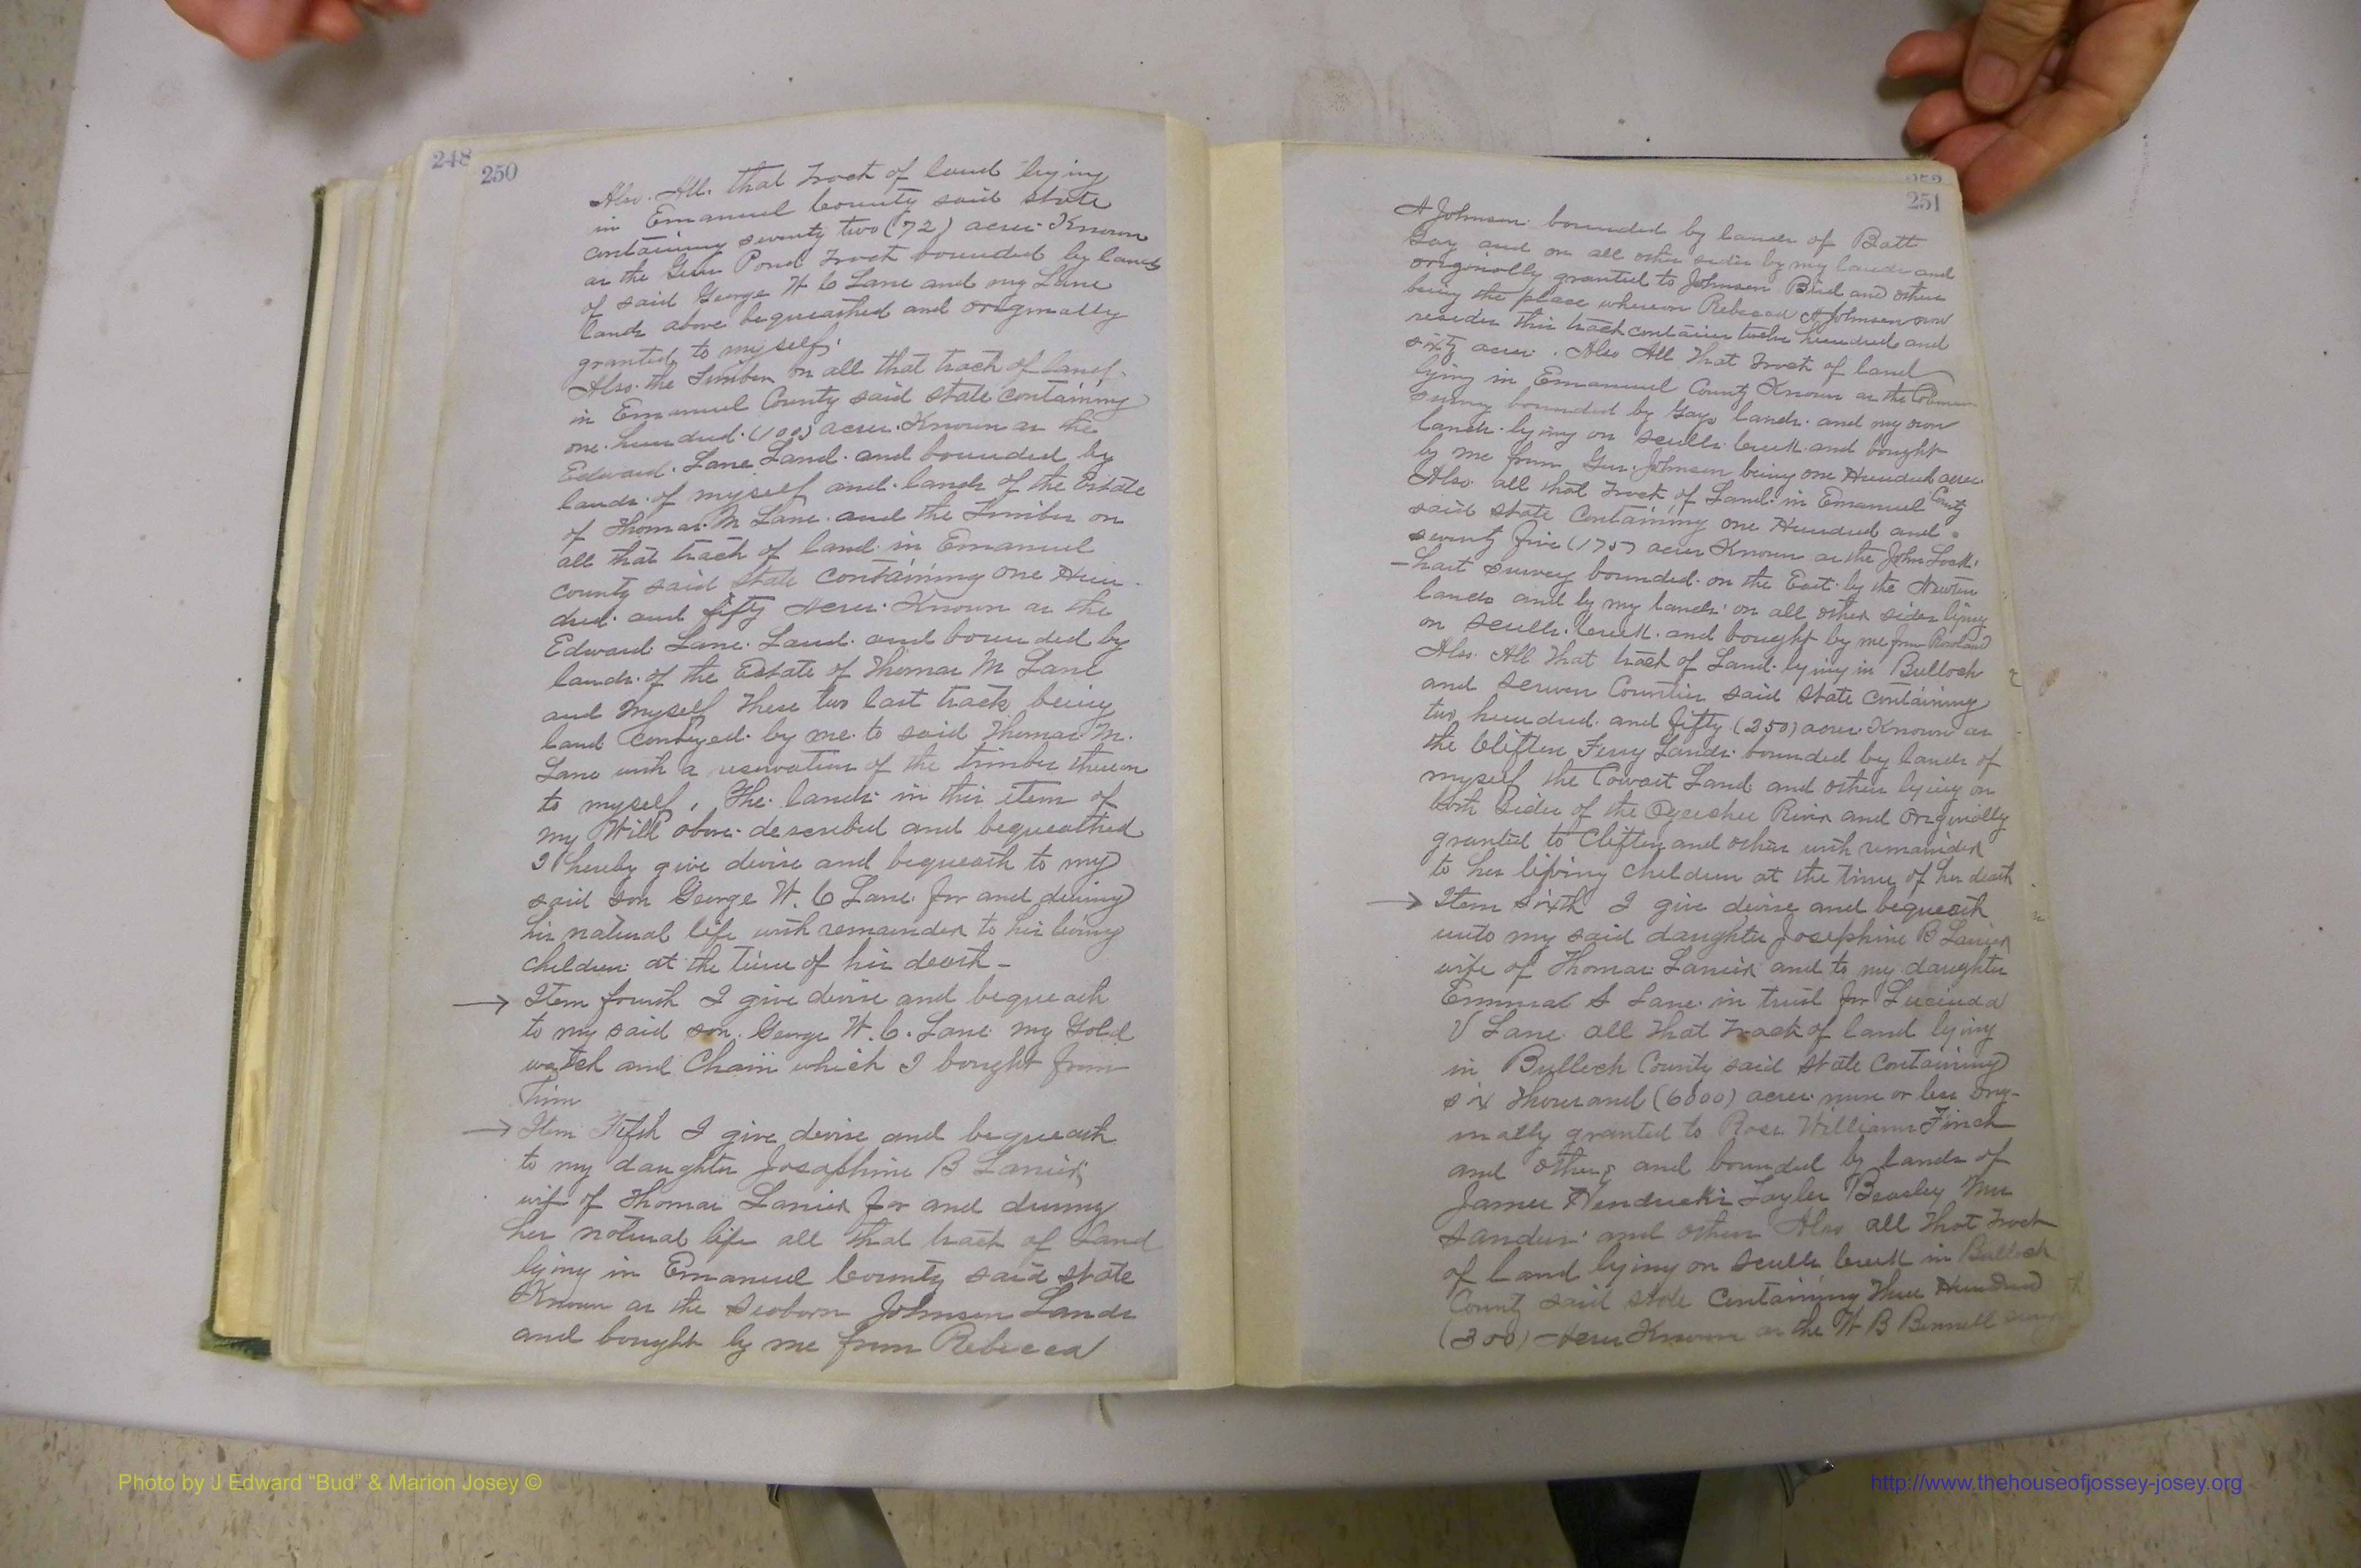 248
250
Also. All. that Tract of land lying
in Emanuel County said State
containing seventy two (72) acres Known
as the Gum Pond Tract bounded by lands
of said George W C Lane and my Lane
lands above bequeathed and originally
granted to myself.
Also the Timber on all that tract of land
in Emanuel County said State containing
one hundred (100) acres. Known as the
Edward Lane Land. and bounded by
lands of myself and lands of the Estate
of Thomas M Lane. and the Timber on
all that tract of land in Emanuel
county said State containing one Hun-
dred and fifty Acres. Known as the
Edward Lane Land. and bounded by
lands of the Estate of Thomas M Lane
and myself These two last tracts being
land conveyed by me to said Thomas M.
Lane with a reservation of the timber thereon
to myself. The lands in this item of
my Will above described and bequeathed
I hereby give devise and bequeath to my
said son George W. C Lane for and during
his natural life with remainder to his living
children at the time of his death -
Item fourth I give devise and bequeath
to my said son George W. C. Lane my Gold
watch and Chain which I bought from
him
Item Fifth I give devise and bequeath
to my daughter Josephine B Lanier,
wife of Thomas Lanier for and during
her natural life all that tract of Land
lying in Emanuel County said State
Known as the Seaborn Johnson Lands
and bought by me from Rebecca
251
A Johnson bounded by lands of Batt
Gay and on all other sides by my lands and
originally granted to Johnson Bird and others
being the place whereon Rebecca A Johnson now
resides this tract contains twelve hundred and
sixty acres. Also All That Tract of land
lying in Emanuel County Known as the
survey bounded by Gays lands and my own
lands lying on Sculls Creek and bought
by me from Johnson being one Hundred acres
Also all that Tract of Land in Emanuel County
said State Containing one Hundred and
seventy five (175) acres Known as the John Lock-
-hart survey bounded on the East by the Newton
lands and by my lands on all other sides lying
on Sculls Creek and bought by me from Rowland
Also All That tract of Land lying in Bulloch
and Screven Counties said State Containing
two hundred and fifty (250) acres Known as
the Cliften Ferry Lands bounded by lands of
myself the Cowart Land and others lying on
both sides of the Ogeechee River and Originally
granted to Cliften and others with remainder
to her living children at the time of her death
Item Sixth I give devise and bequeath
unto my said daughter Josephine B Lanier
wife of Thomas Lanier and to my daughter
Emma S Lane in trust for Lucinda
V Lane all that tract of land lying
in Bulloch County said State Containing
six Thousand (6000) acres more or less Orig-
inally granted to Rose William Finch
and others and bounded by lands of
James Hendricks Taylor Beasley Mrs
Sanders and others Also all that Tract
of Land lying on Sculls Creek in Bulloch
County said State Containing Three Hundred
(300) Acres Known as the W B Bennett survey
Photo by J Edward “Bud” & Marion Josey ©
http://www.thehouseofjossey-josey.org